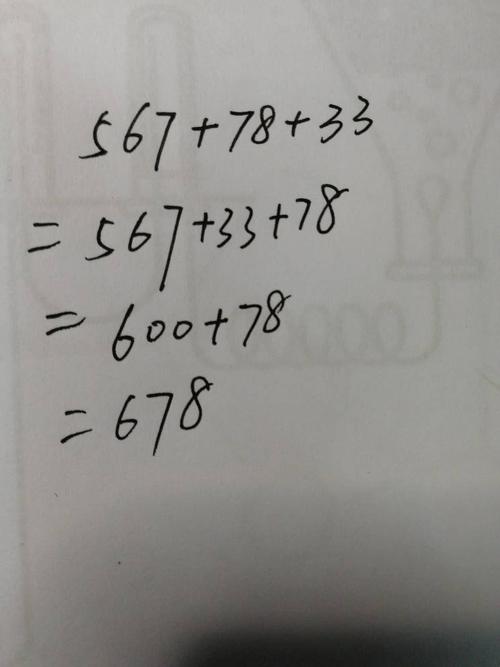 567+78+33
=567+33+78
=600+78
=678